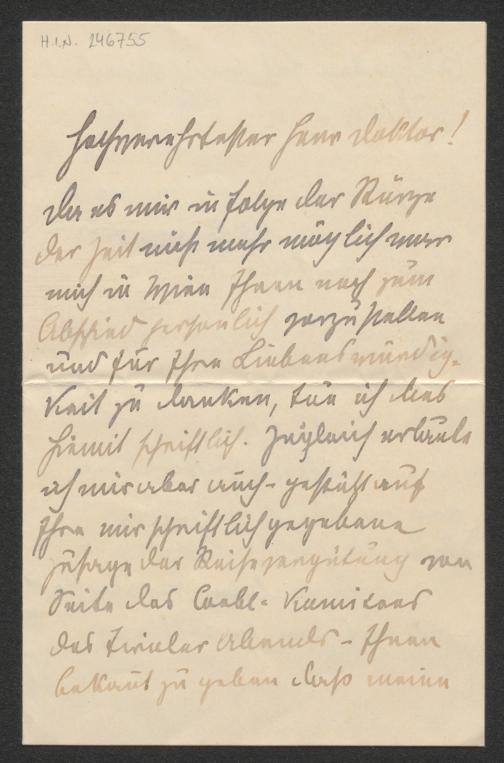 H.I.N. 246755
Hochverehrtester Herr Doktor!
Da es mir in folge der Kürze
der Zeit nicht mehr möglich war
mich in Wien Ihnen noch zum
Abschied persönlich vorzustellen
und für Ihre Liebenswürdig-
keit zu danken, tue ich dies
hiemit schriftlich. Zugleich erlaube
ich mir aber auch - gestützt auf
Ihre mir schriftlich gegebene
Zusage der Reisevergütung von
Seite des löbl. Komitees
des Tiroler Abends - Ihnen
bekannt zu geben daß meine